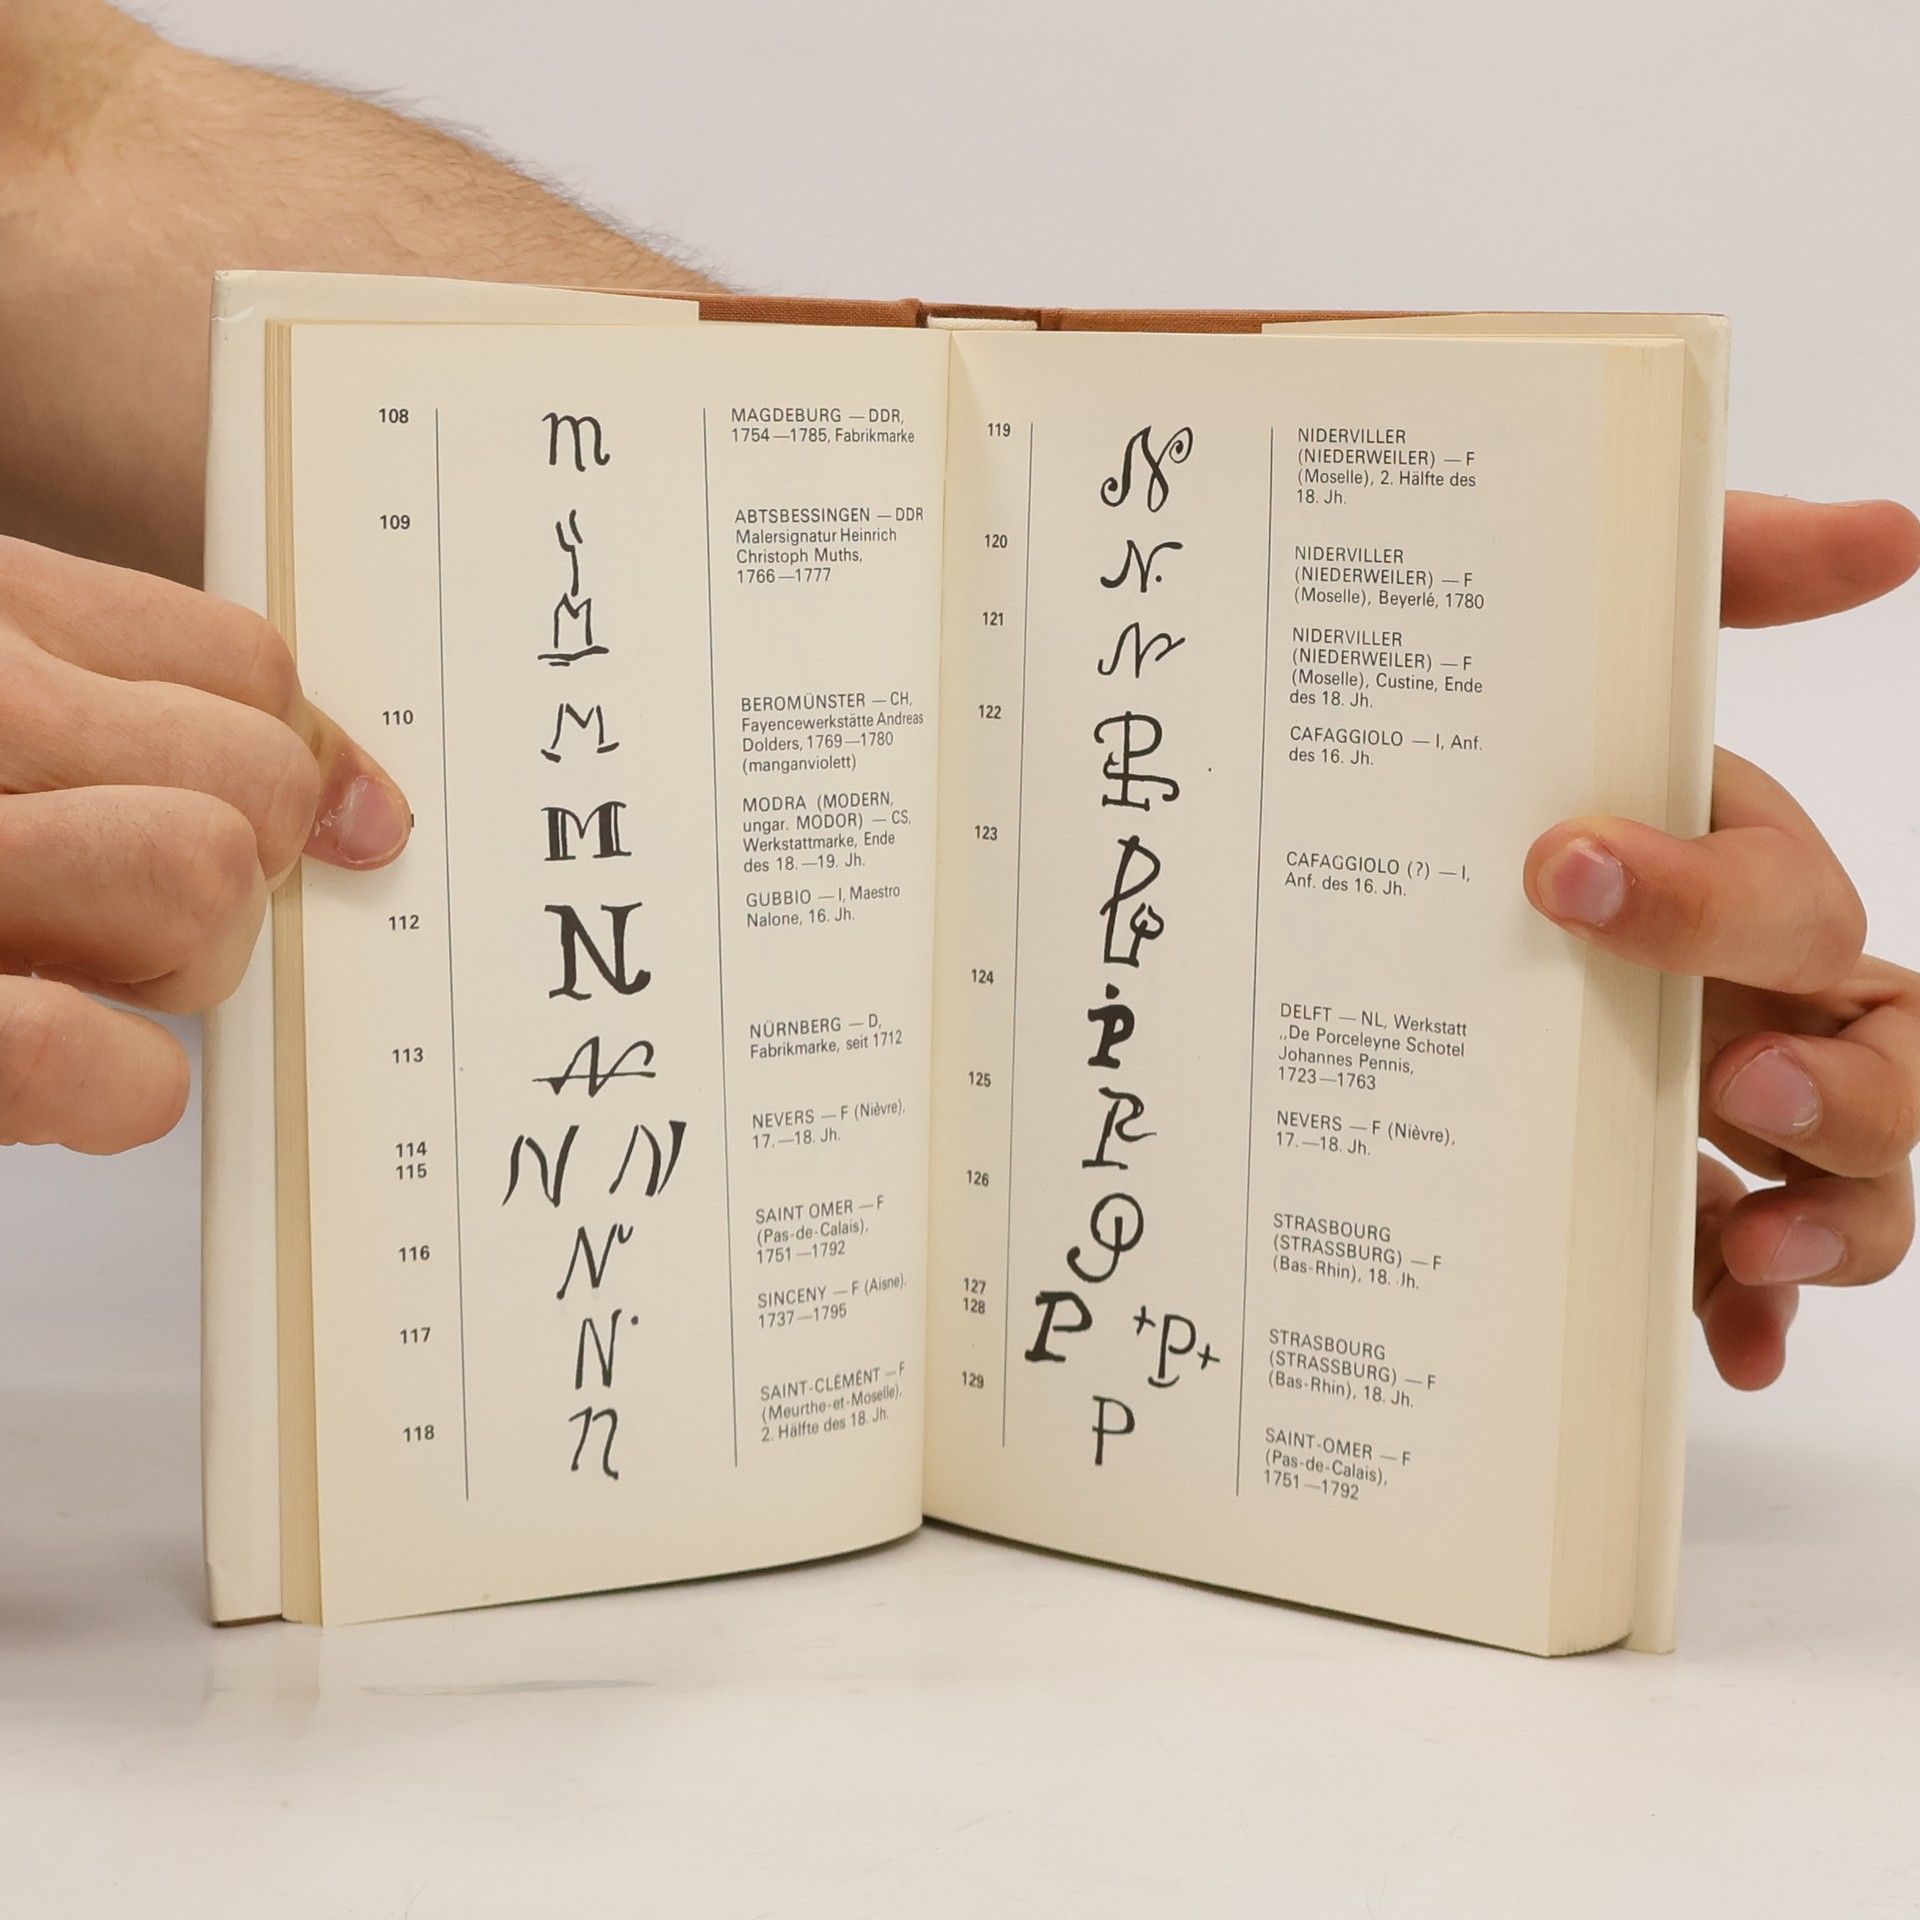 108
m
MAGDEBURG — DDR,
1754—1785, Fabrikmarke
109
M
ABTSBESSINGEN — DDR
Malersignatur Heinrich
Christoph Muths,
1766—1777
110
M
BEROMÜNSTER — CH,
Fayencewerkstätte Andreas
Dolders, 1769—1780
(manganviolett)
M
MODRA (MODERN,
ungar. MODOR) — CS,
Werkstattmarke, Ende
des 18.—19. Jh.
112
N
GUBBIO — I, Maestro
Nalone, 16. Jh.
113
N
NÜRNBERG — D,
Fabrikmarke, seit 1712
114
115
N N
NEVERS — F (Nièvre),
17.—18. Jh.
116
N
SAINT OMER — F
(Pas-de-Calais),
1751—1792
117
N·
SINCENY — F (Aisne),
1737—1795
118
n
SAINT-CLÉMENT — F
(Meurthe-et-Moselle),
2. Hälfte des 18. Jh.
119
N
NIDERVILLER
(NIEDERWEILER) — F
(Moselle), 2. Hälfte des
18. Jh.
120
N.
NIDERVILLER
(NIEDERWEILER) — F
(Moselle), Beyerlé, 1780
121
N
NIDERVILLER
(NIEDERWEILER) — F
(Moselle), Custine, Ende
des 18. Jh.
122
CAFAGGIOLO — I, Anf.
des 16. Jh.
123
CAFAGGIOLO (?) — I,
Anf. des 16. Jh.
124
P
DELFT — NL, Werkstatt
„De Porceleyne Schotel
Johannes Pennis,
1723—1763
125
NEVERS — F (Nièvre),
17.—18. Jh.
126
STRASBOURG
(STRASSBURG) — F
(Bas-Rhin), 18. Jh.
127
128
P +P+
STRASBOURG
(STRASSBURG) — F
(Bas-Rhin), 18. Jh.
129
P
SAINT-OMER — F
(Pas-de-Calais),
1751—1792